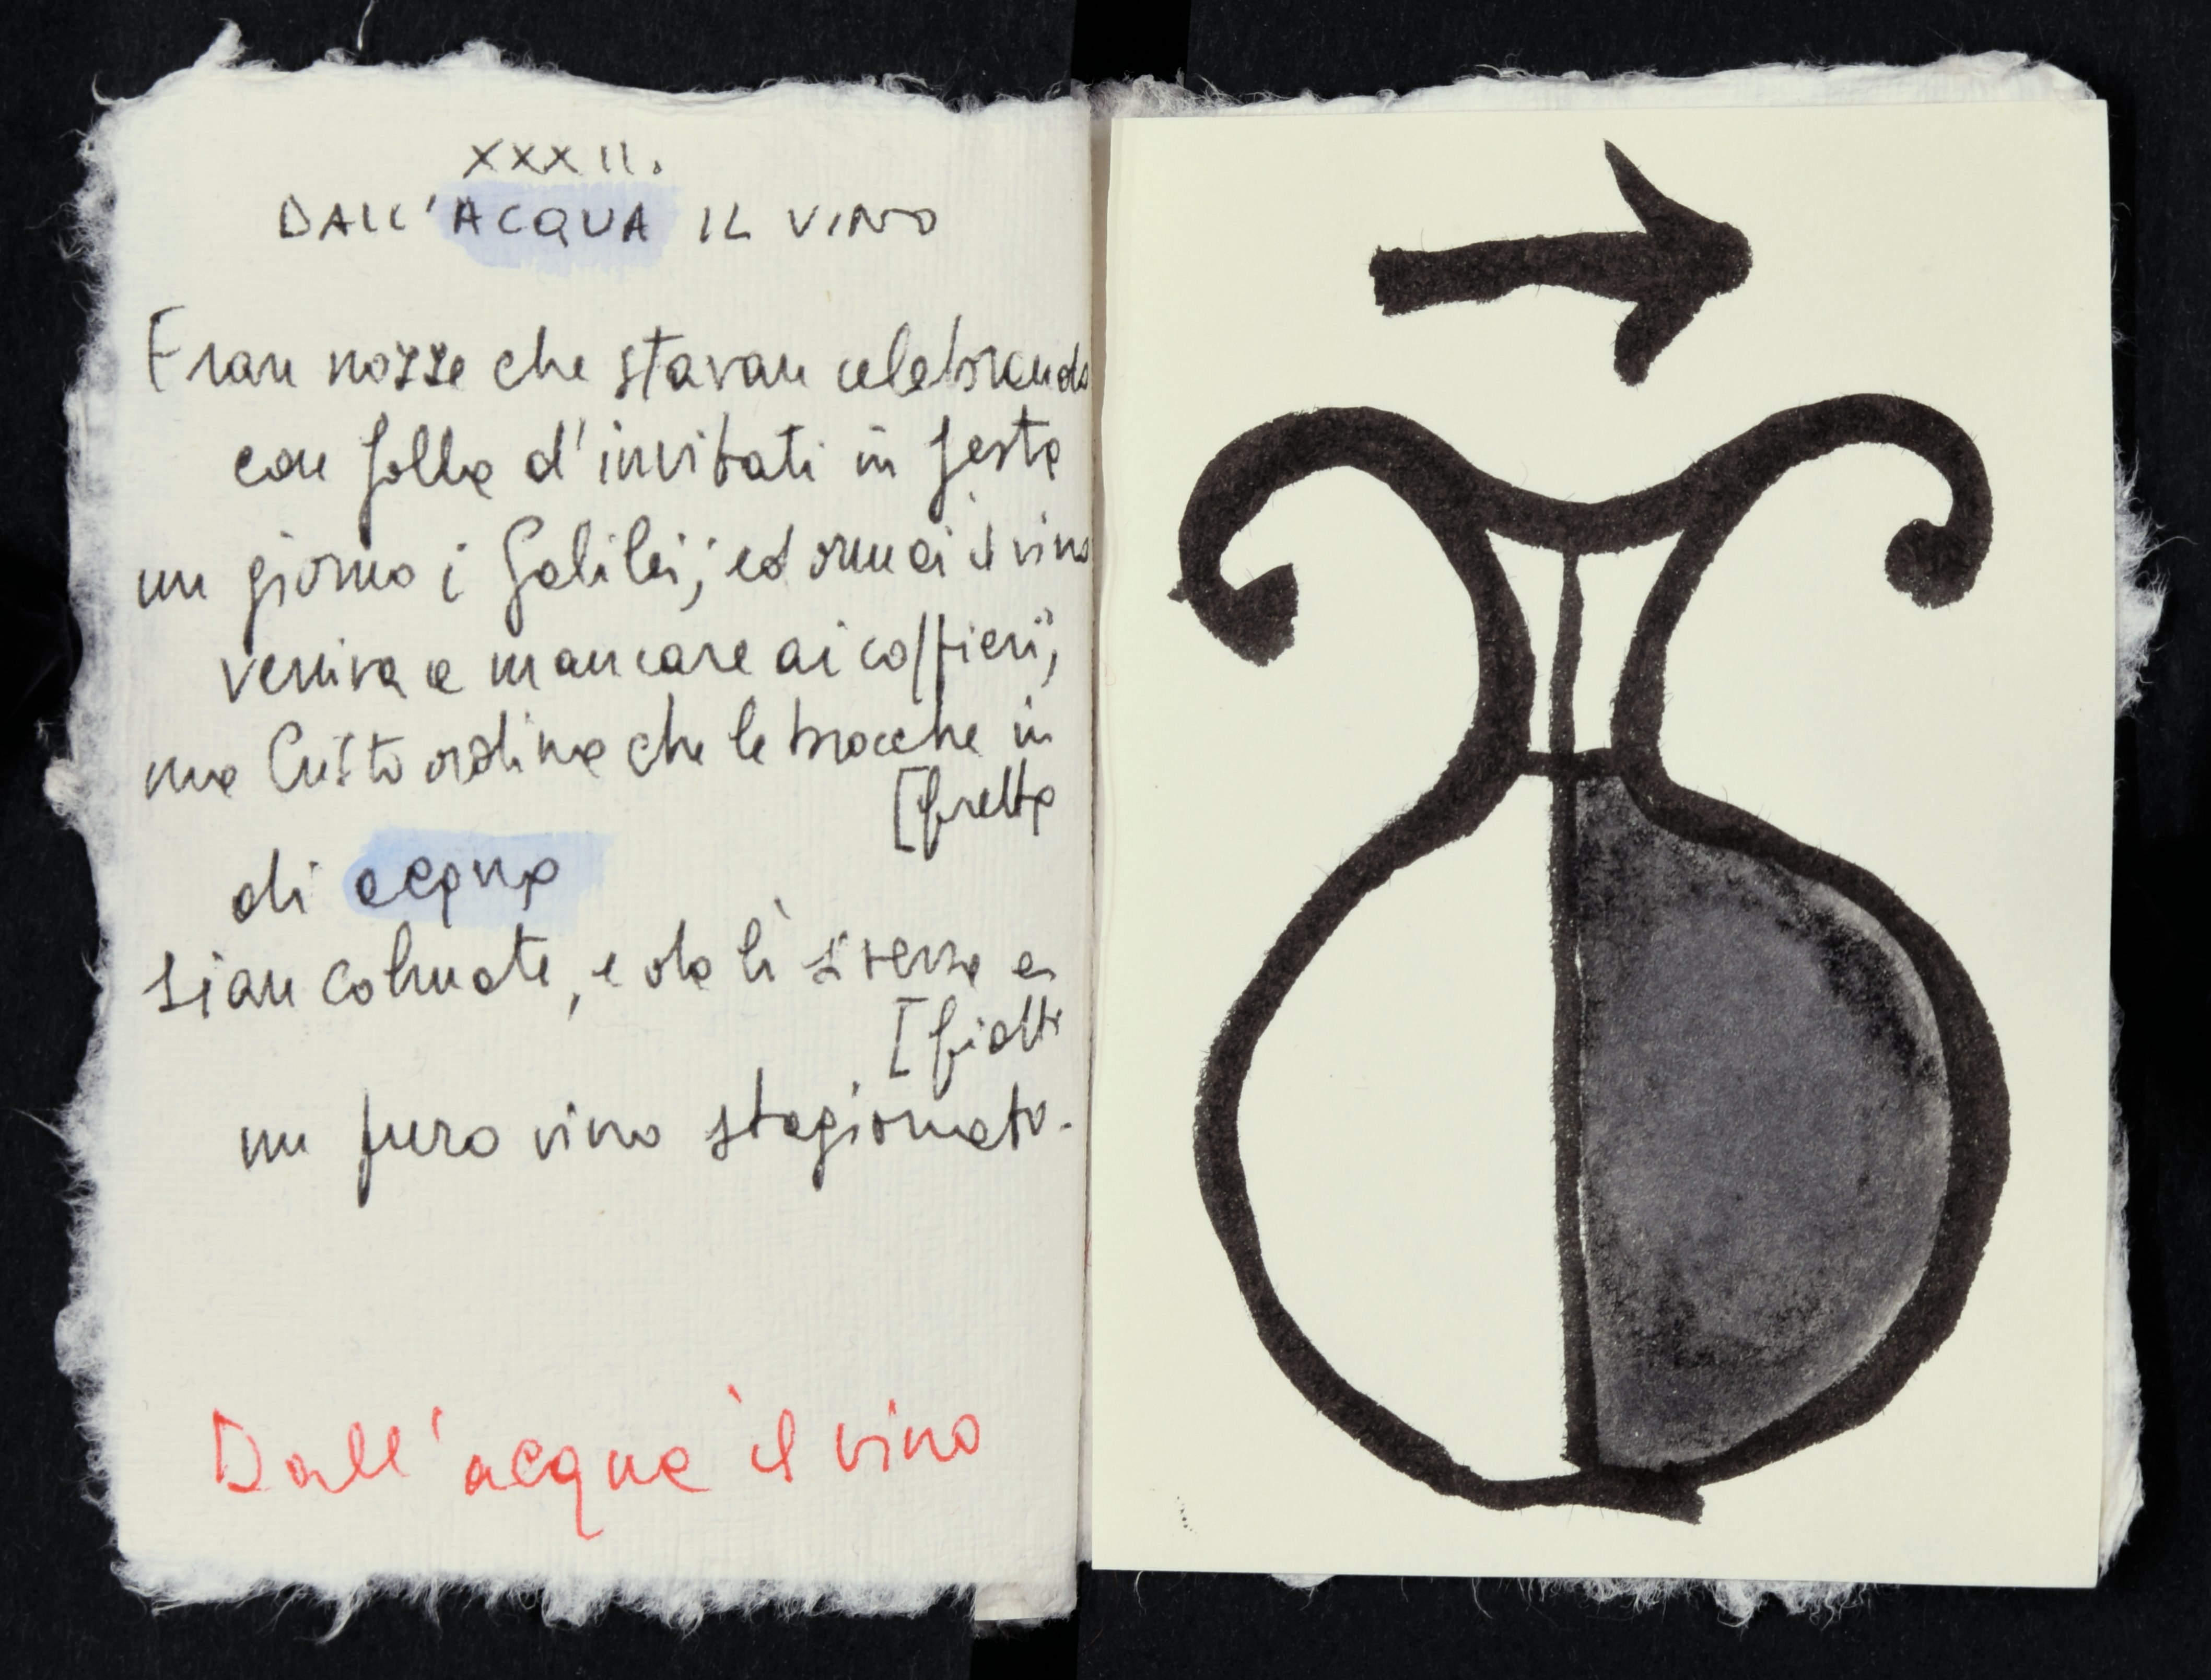 XXXII.
DALL'ACQUA IL VINO
Eran nozze che stavan celebrando
con folla d'invitati in festa
un giorno i Galilei; ed ormai il vino
veniva a mancare ai coppieri;
ma Cristo ordina che le brocche in
[fretta
di acqua
sian colmate, e da lì si versa a
[fiotti
un puro vino stagionato.
Dall'acqua il vino